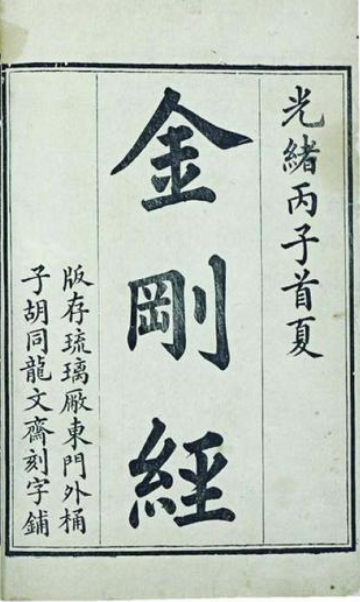 光緒丙子首夏
金剛經
版存琉璃厰東門外桶
子胡同龍文齋刻字鋪